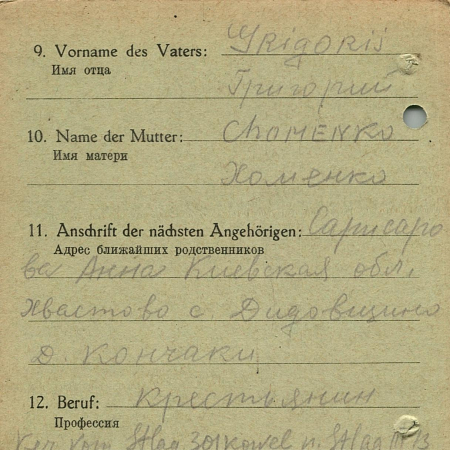 9. Vorname des Vaters: Grigorij
Имя отца
Григорий
10. Name der Mutter: CHOMENKO
Имя матери
Хоменко
11. Anschrift der nächsten Angehörigen: Сарисаро
Адрес ближайших родственников
ва Анна Киевская обл.
Хвастово с. Дидовщино
д. Кончаки
12. Beruf: Крестьянин
Профессия
Stalag 301 Kowel n. Stalag